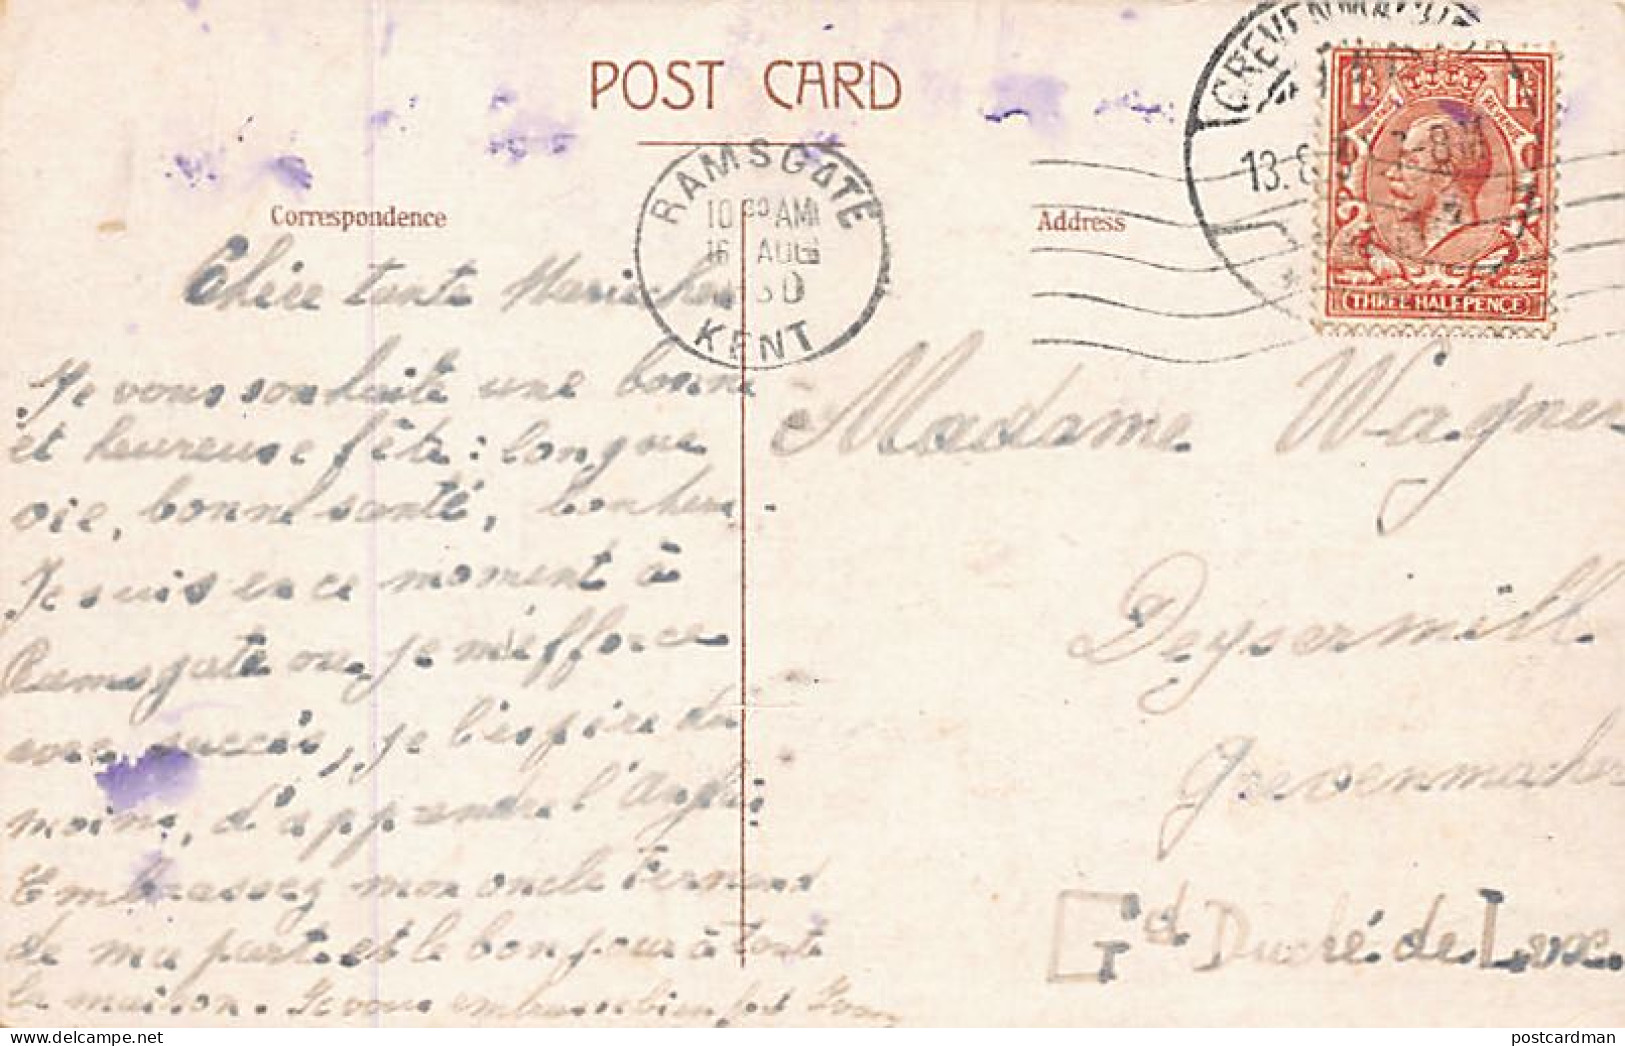 POST CARD
Correspondence
Address
RAMSGATE
10 30 AM
16 AUG
30
KENT
GREVENMACHER
13.8. 7-8
1½ 1½
POSTAGE REVENUE
THREE HALFPENCE
Chère tante
Je vous souhaite une bonne
et heureuse fête : longue
vie, bonne santé, bonheur.
Je suis en ce moment à
Ramsgate ou je m'efforce
avec succès, je l'espère du
moins, d'apprendre l'Anglais
Embrassez mon oncle Fernand
de ma part et le bonjour à toute
la maison. Je vous embrasse bien fort
Madame Wagner
Deysermill
Grevenmacher
Gd Duché de Lux.
postcardman